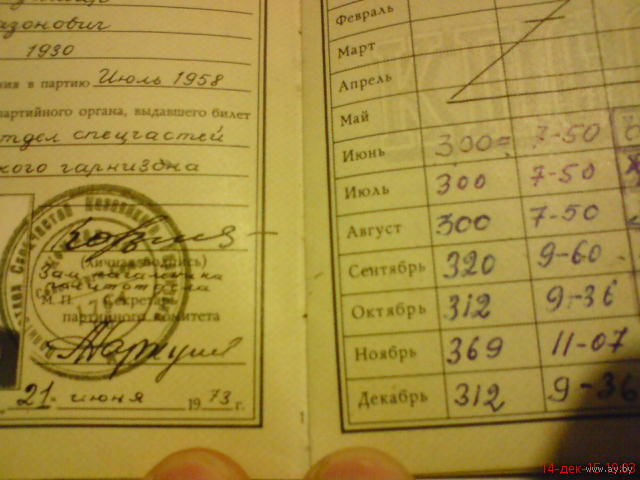 азонович
1930
ния в партию Июль 1958
партийного органа, выдавшего билет
тдел спецчастей
кого гарнизона
(личная подпись)
Зам. начальника
политотдела
М. П. Секретарь
партийного комитета
21 июня 1973 г.
Февраль
Март
Апрель
Май
Июнь 300= 7-50
Июль 300 7-50
Август 300 7-50
Сентябрь 320 9-60
Октябрь 312 9-36
Ноябрь 369 11-07
Декабрь 312 9-36
1
www.ay.by